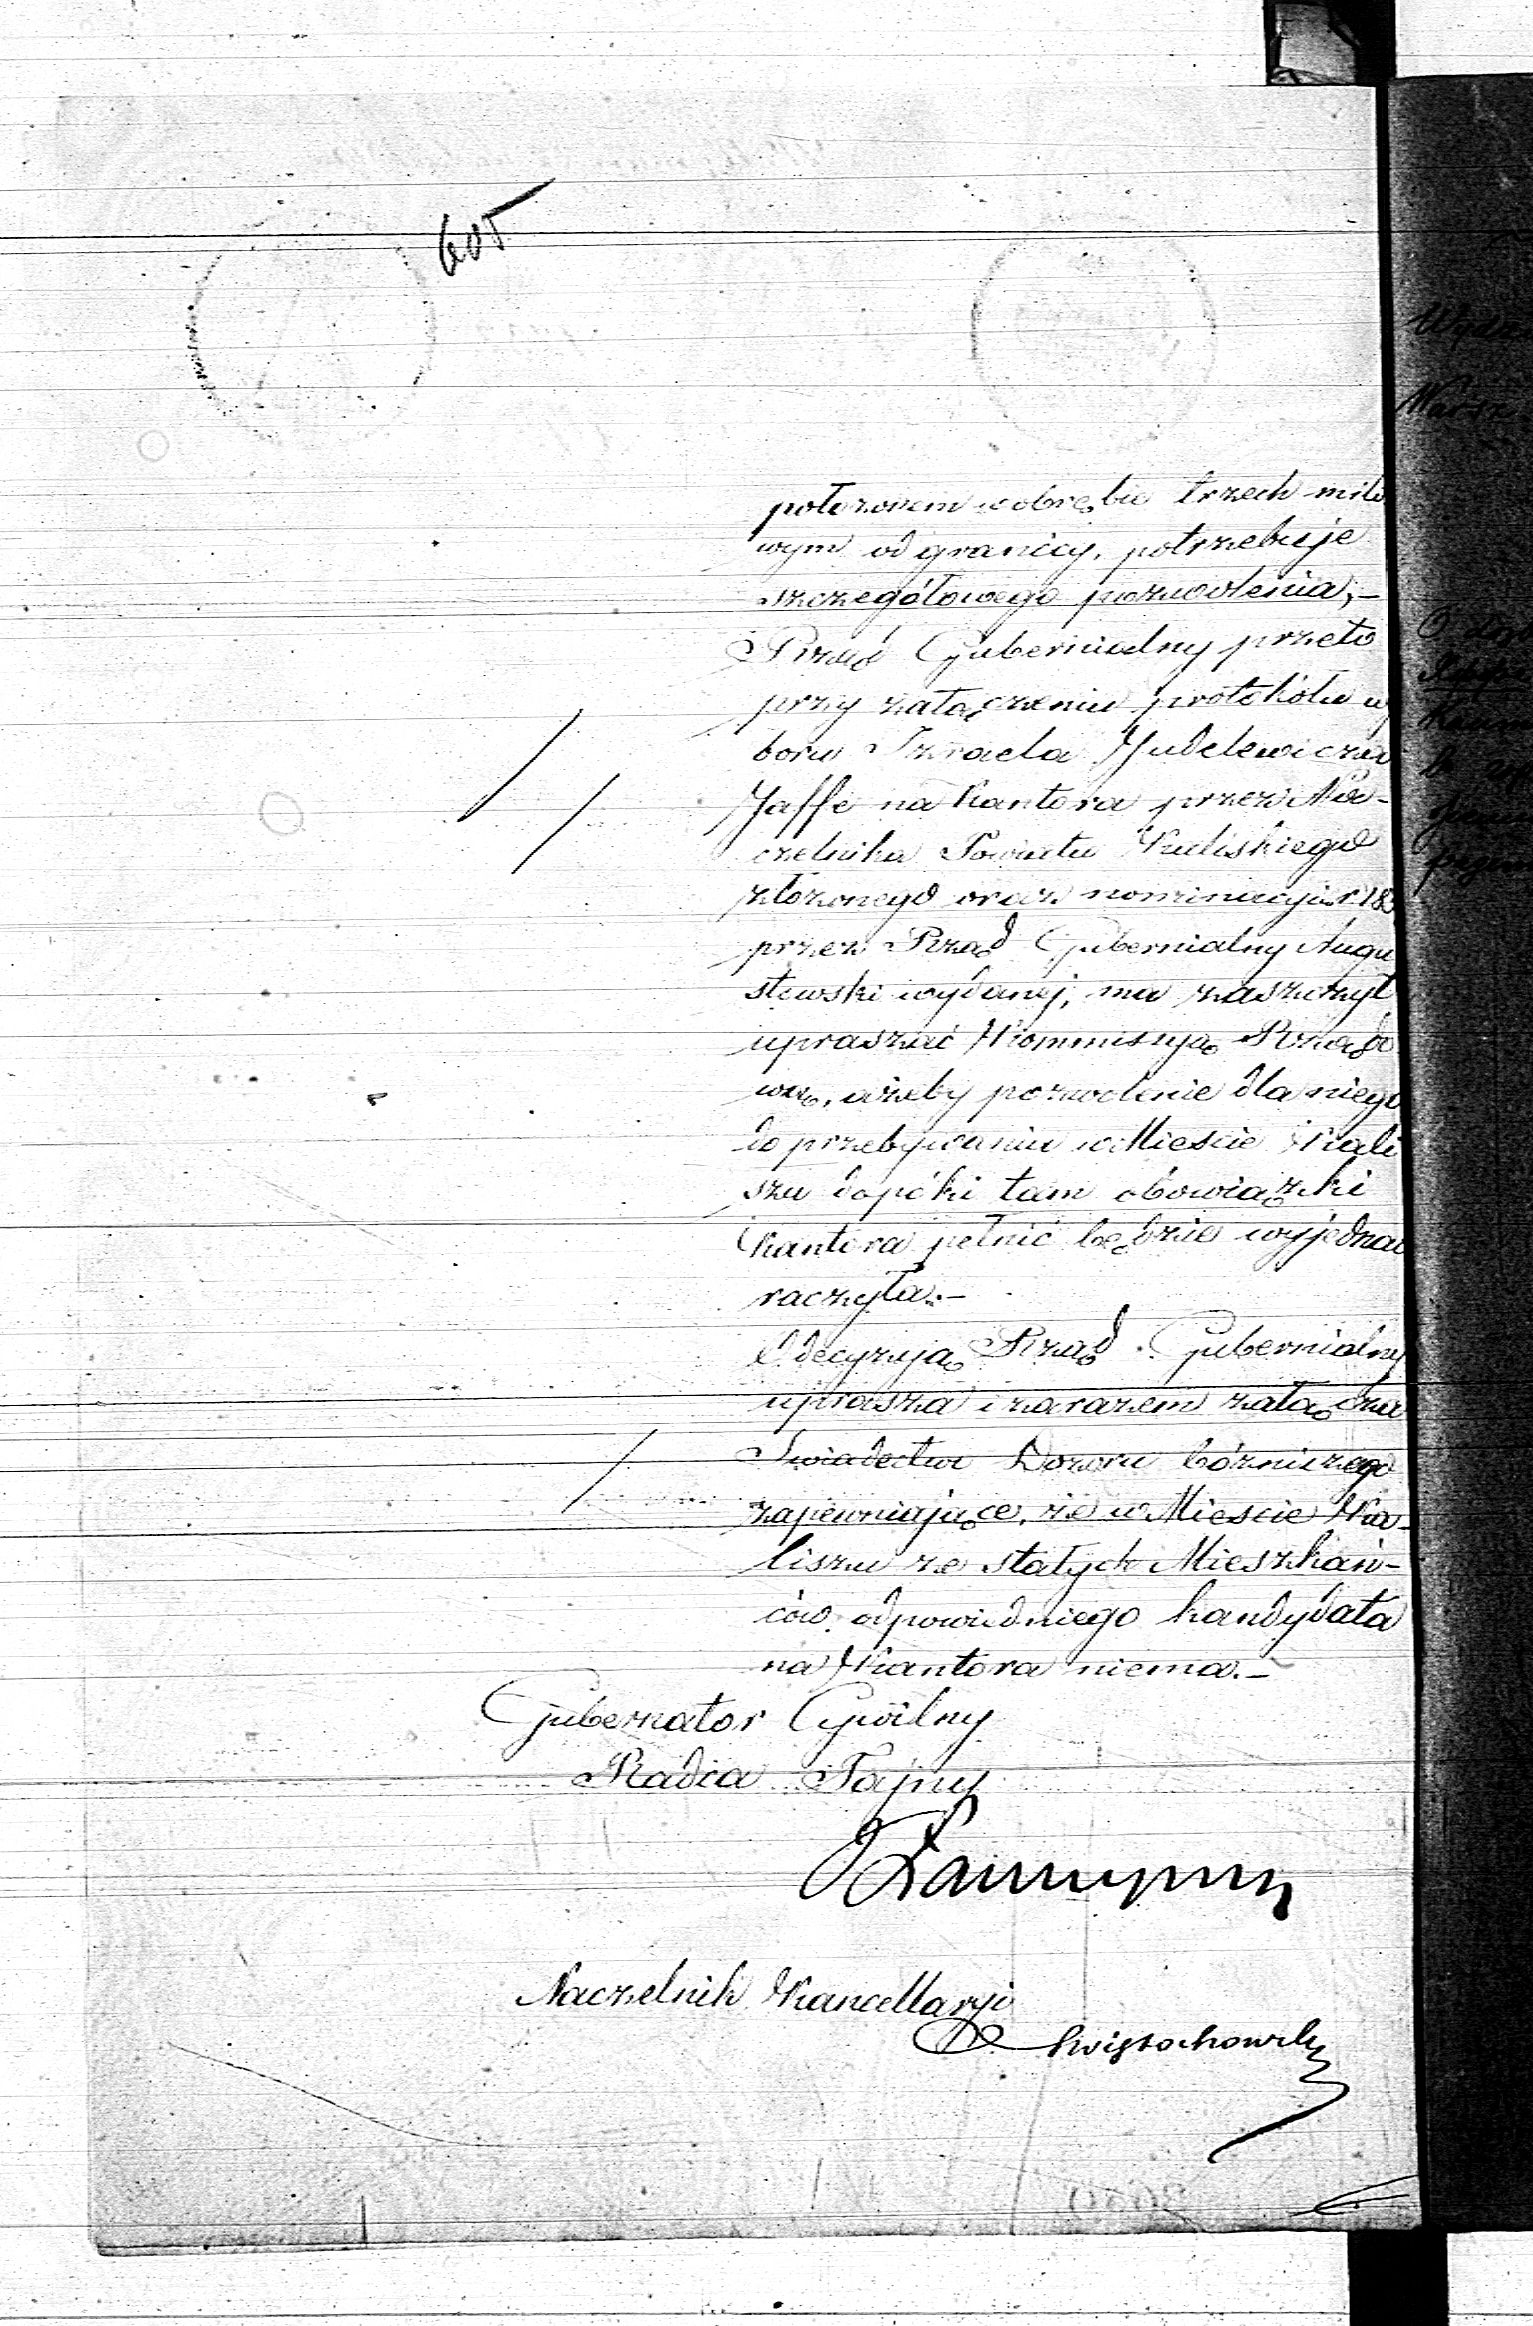 605
położonem w obrębie trzech milo
wym od granicy, potrzebuje
szczegółowego pozwolenia,-
Rząd Gubernialny przeto
przy załączeniu protokółu wy
boru Izraela Judelewicza
Jaffe na Kantora przez Na-
czelnika Powiatu Kaliskiego
złożonego oraz nominacyi r. 18
przez Rząd Gubernialny Augu
stowski wydanej, ma zaszczyt
upraszać Kommissyą Rządo
wą, ażeby pozwolenie dla niego
do przebywania w Mieście Kali
szu dopóki tam obowiązki
Kantora pełnić będzie wyjednać
raczyła.-
O decyzyą Rząd Gubernialny
uprasza i zarazem załącza
Świadectwo Dozoru Bóżniczego
zapewniające, że w Mieście Ka-
liszu ze stałych Mieszkań-
ców odpowiedniego kandydata
na Kantora niema.-
Gubernator Cywilny
Radca Tajny
Naczelnik Kancellaryi
Świętochowski